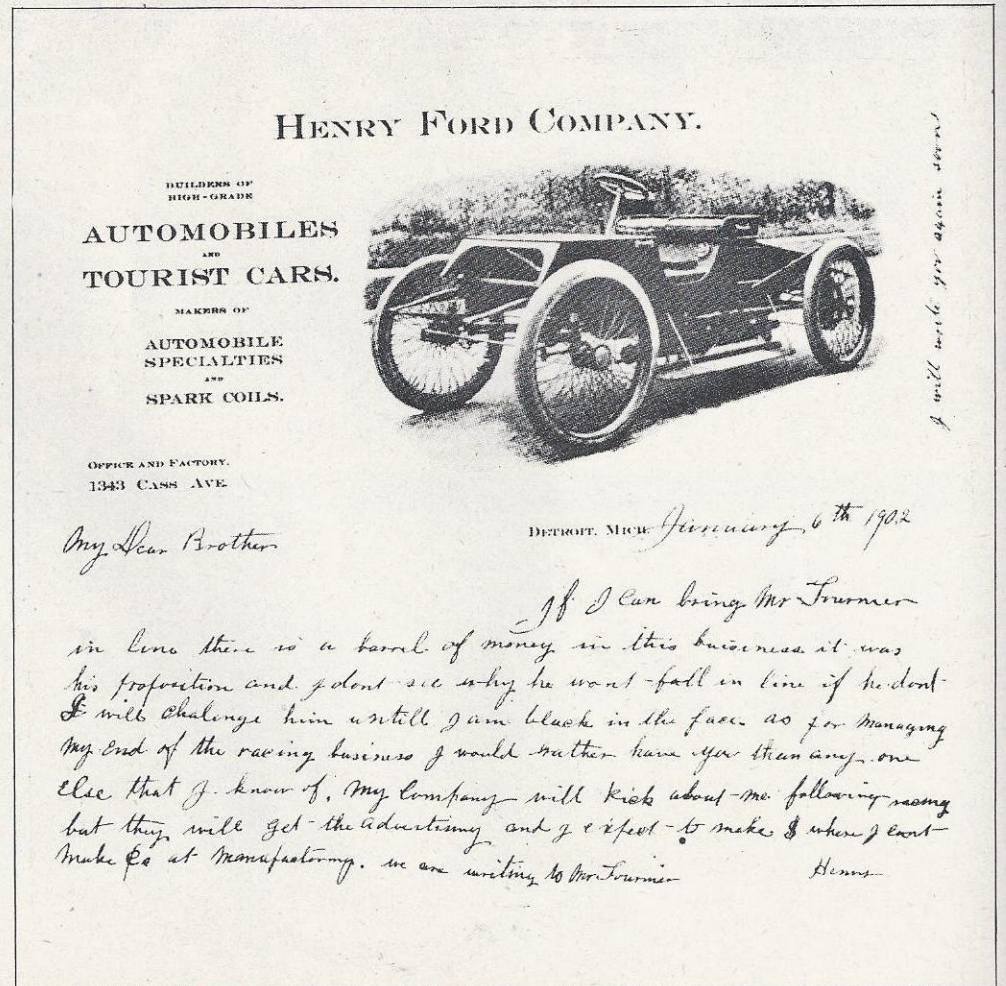 HENRY FORD COMPANY.
BUILDERS OF
HIGH-GRADE
AUTOMOBILES
AND
TOURIST CARS.
MAKERS OF
AUTOMOBILE
SPECIALTIES
AND
SPARK COILS.
OFFICE AND FACTORY.
1343 CASS AVE.
DETROIT, MICH. January 6th 1902
My Dear Brother
If I can bring Mr Fournier
in line there is a barrel of money in this business it was
his proposition and I dont see why he wont fall in line if he dont
I will chalenge him untill I am black in the face. as for managing
my end of the racing business I would rather have you than any one
else that I know of. My Company will kick about me following racing
but they will get the Advertising and I expect to make $ where I cant
make ¢s at Manufacturing. we are writing to Mr Fournier
Henry
I will write you again soon